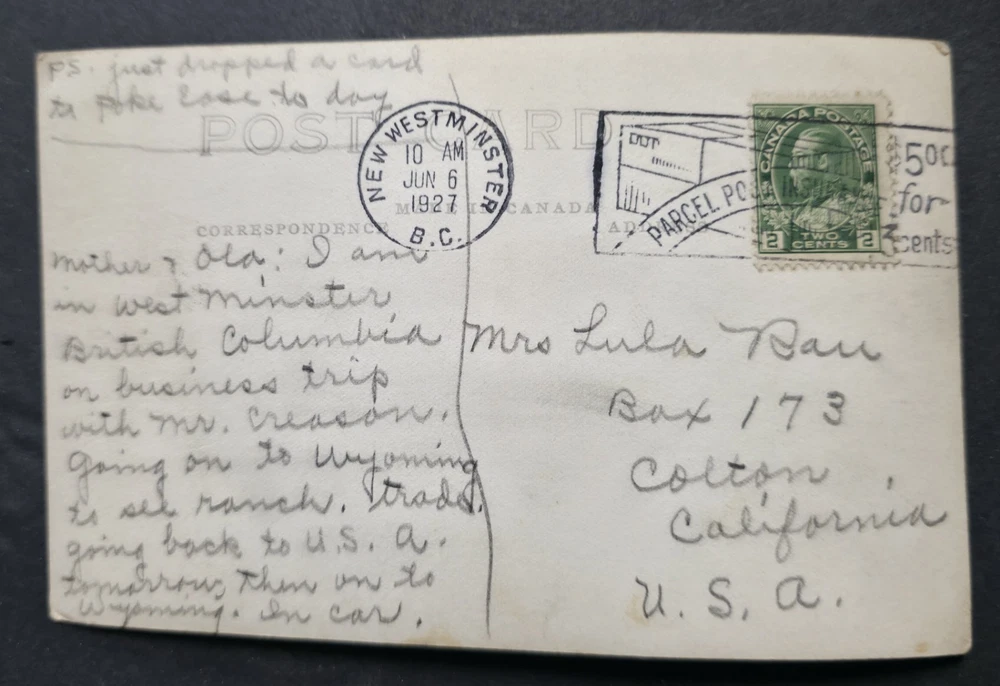 PS. just dropped a card
to Poke Ease to day
POST CARD
NEW WESTMINSTER
10 AM
JUN 6
1927
B.C.
PARCEL POST INSURED
50
for
cents
CANADA POSTAGE
2 TWO CENTS 2
MADE IN CANADA
CORRESPONDENCE
ADDRESS
Mother & Ola: I am
in West Minster
British Columbia
on business trip
with Mr. Creason.
Going on to Wyoming
to see ranch. trade.
going back to U.S. A.
tomorrow, then on to
Wyoming. In car.
Mrs Lula Bau
Box 173
Colton,
California
U. S. A.